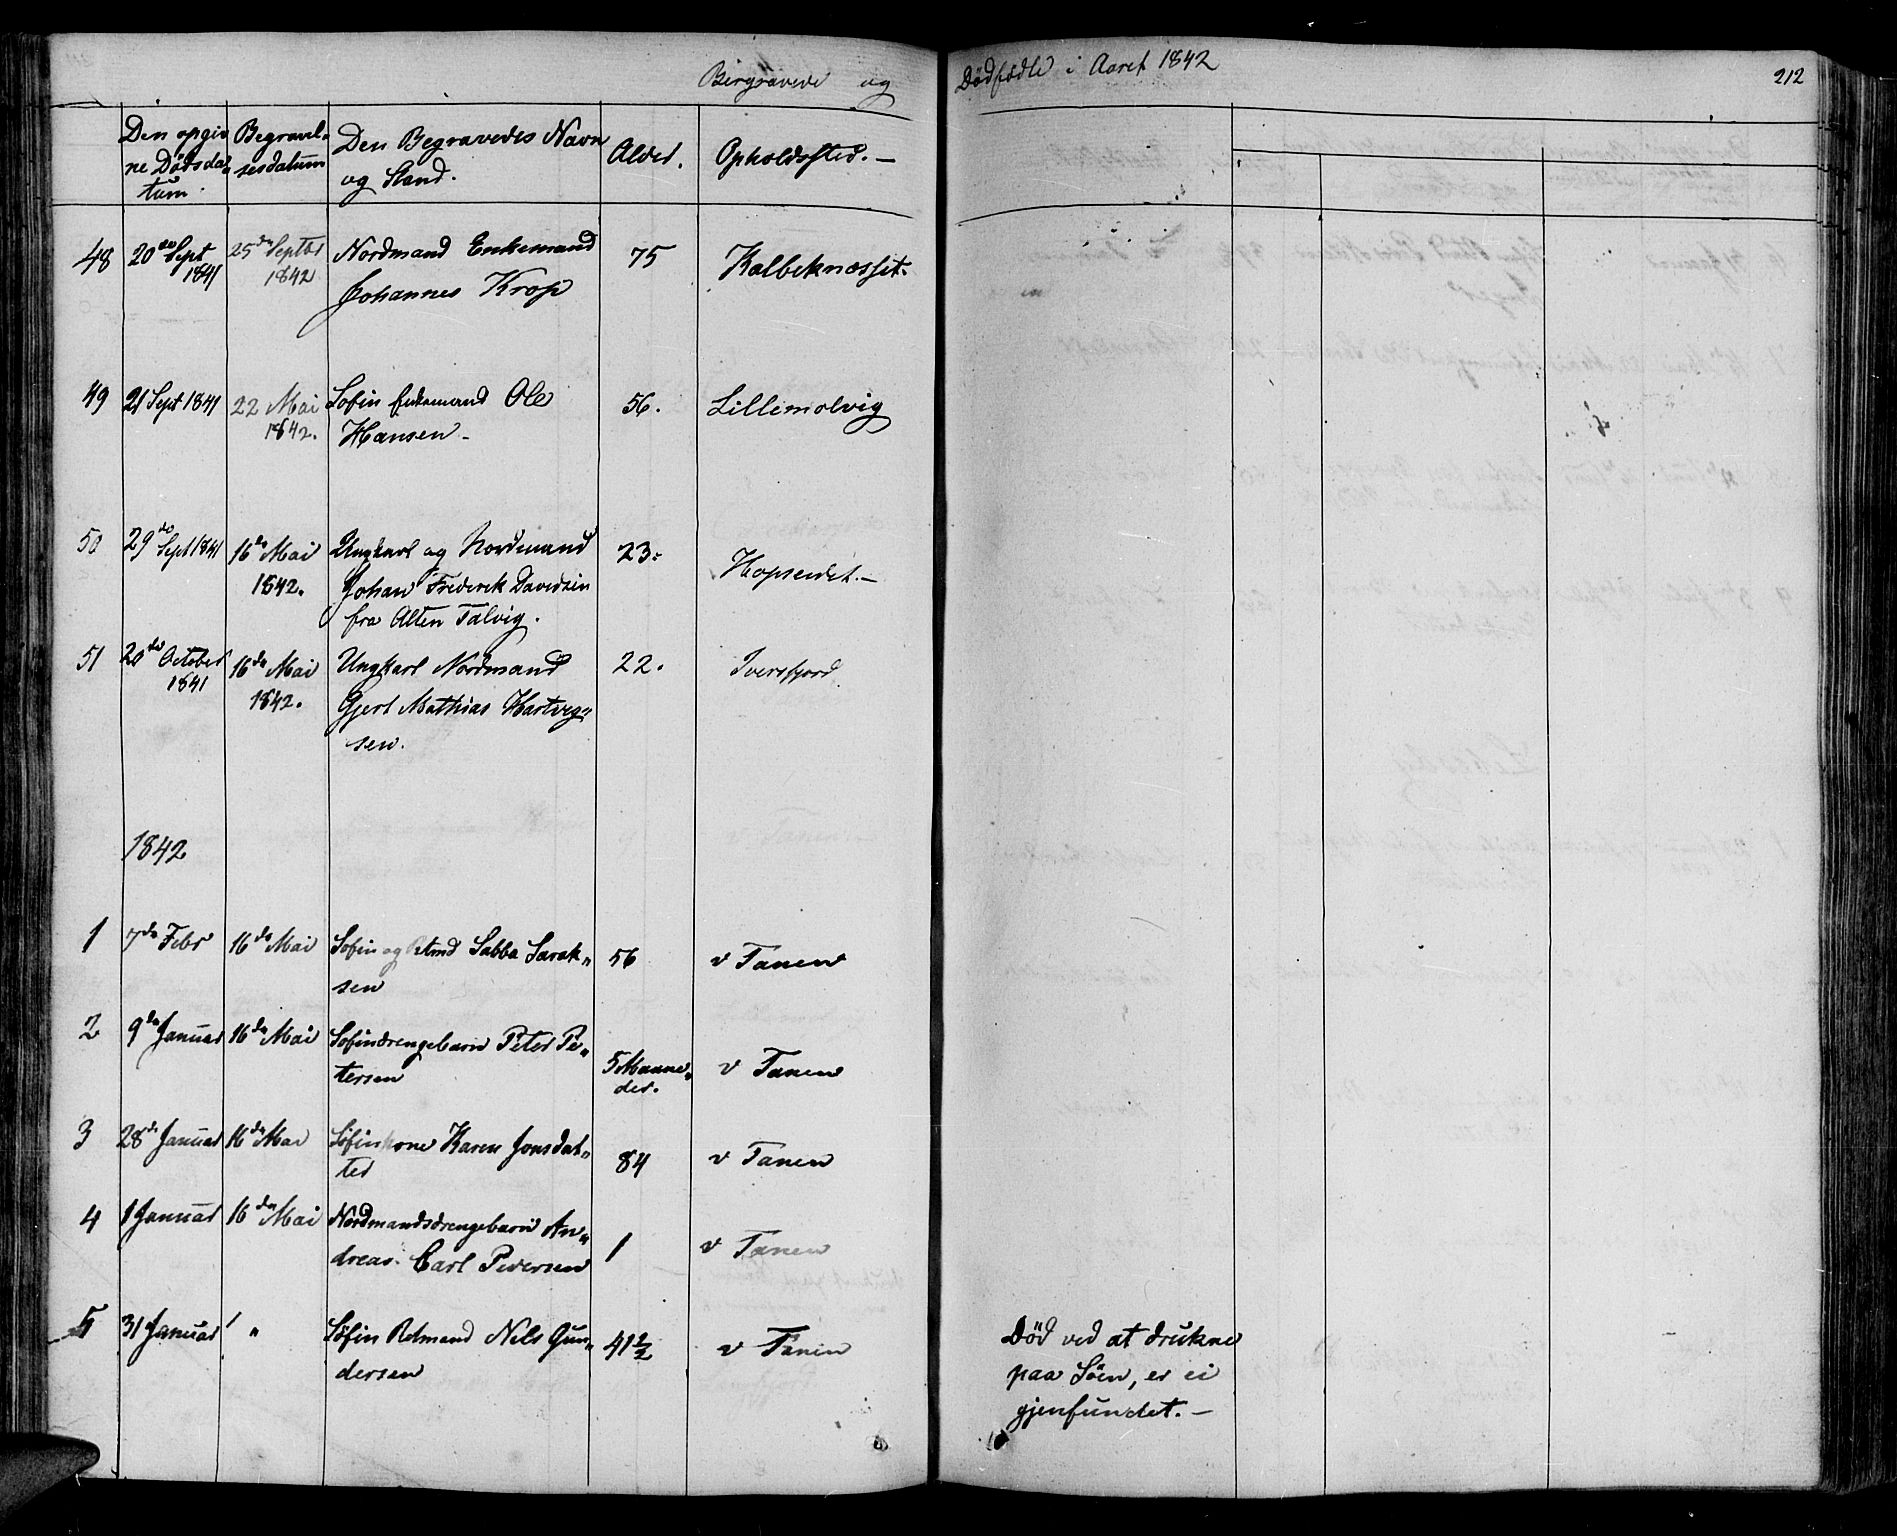 Bergravede og Dödfödte i Aaret 1842
212
Den opgiv
ne Dödsda„
tum.
Begravel„
sesdatum
Den Begravedes Navn
og Stand.
Alder.
Opholdssted. —
48 20de Sept 1841 25de Septbr 1842 Nordmand Enkemand Johannes Krop 75 Kalbeknæsset.
49 21 Sept 1841 22 Mai 1842. Sofin Enkemand Ole Hansen 56. Lillemolvig
50 29de Sept 1841 16de Mai 1842. Ungkarl og Nordmand Johan Frederik Davidsen fra Alten Talvig. 23. Hopseidet. —
51 20de October 1841 16de Mai 1842. Ungkarl Nordmand Gjert Mathias Hartvig„ sen. 22. Iversfjord
1842
1 7de Febr 16de Mai Sofin og Retmd Sabba Sarak„ sen 56 v Tanen
2 9de Januar 16de Mai Söfindrengebarn Peter Pe„ tersen 5 Maane„ der. v Tanen
3 28de Januar 16de Mai Söfinkone Karen Jonsdat„ ter 84 v Tanen
4 1 Januar 16de Mai Nordmandsdrengebarn An„ dreas Carl Pedersen 1 v Tanen
5 31 Januar „ Söfin Retmand Nils Gun„ dersen 41 1/2 v Tanen
Död ved at drukne
paa Söen, er ei
gjenfundet. —